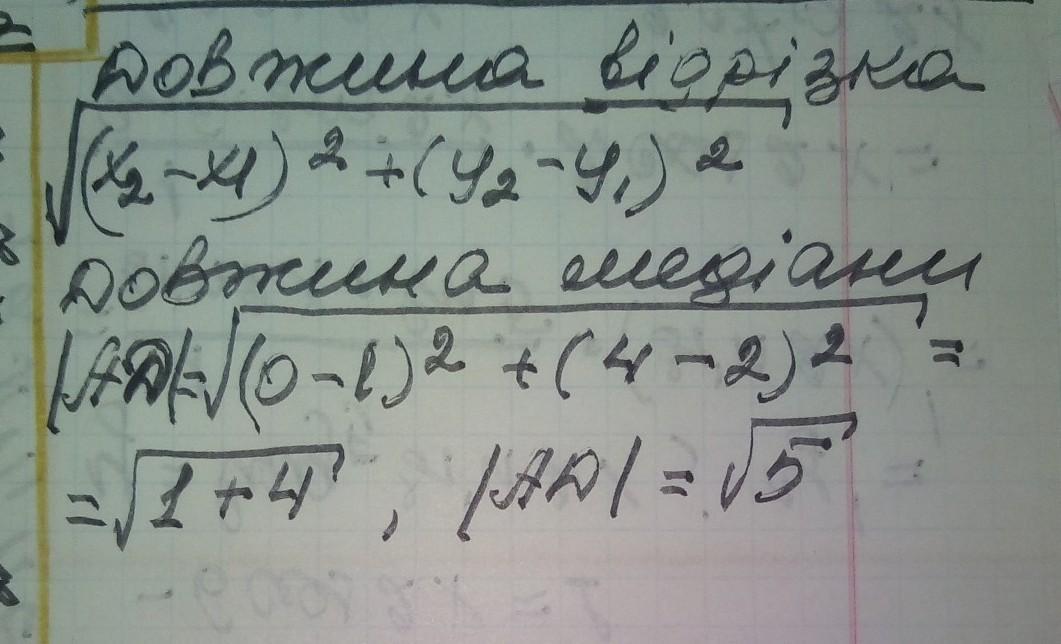 Довжина відрізка
√(x₂-x1)² + (y₂-y₁)²
Довжина медіани
|AD|=√(0-1)² + (4-2)² =
=√1+4, |AD| = √5